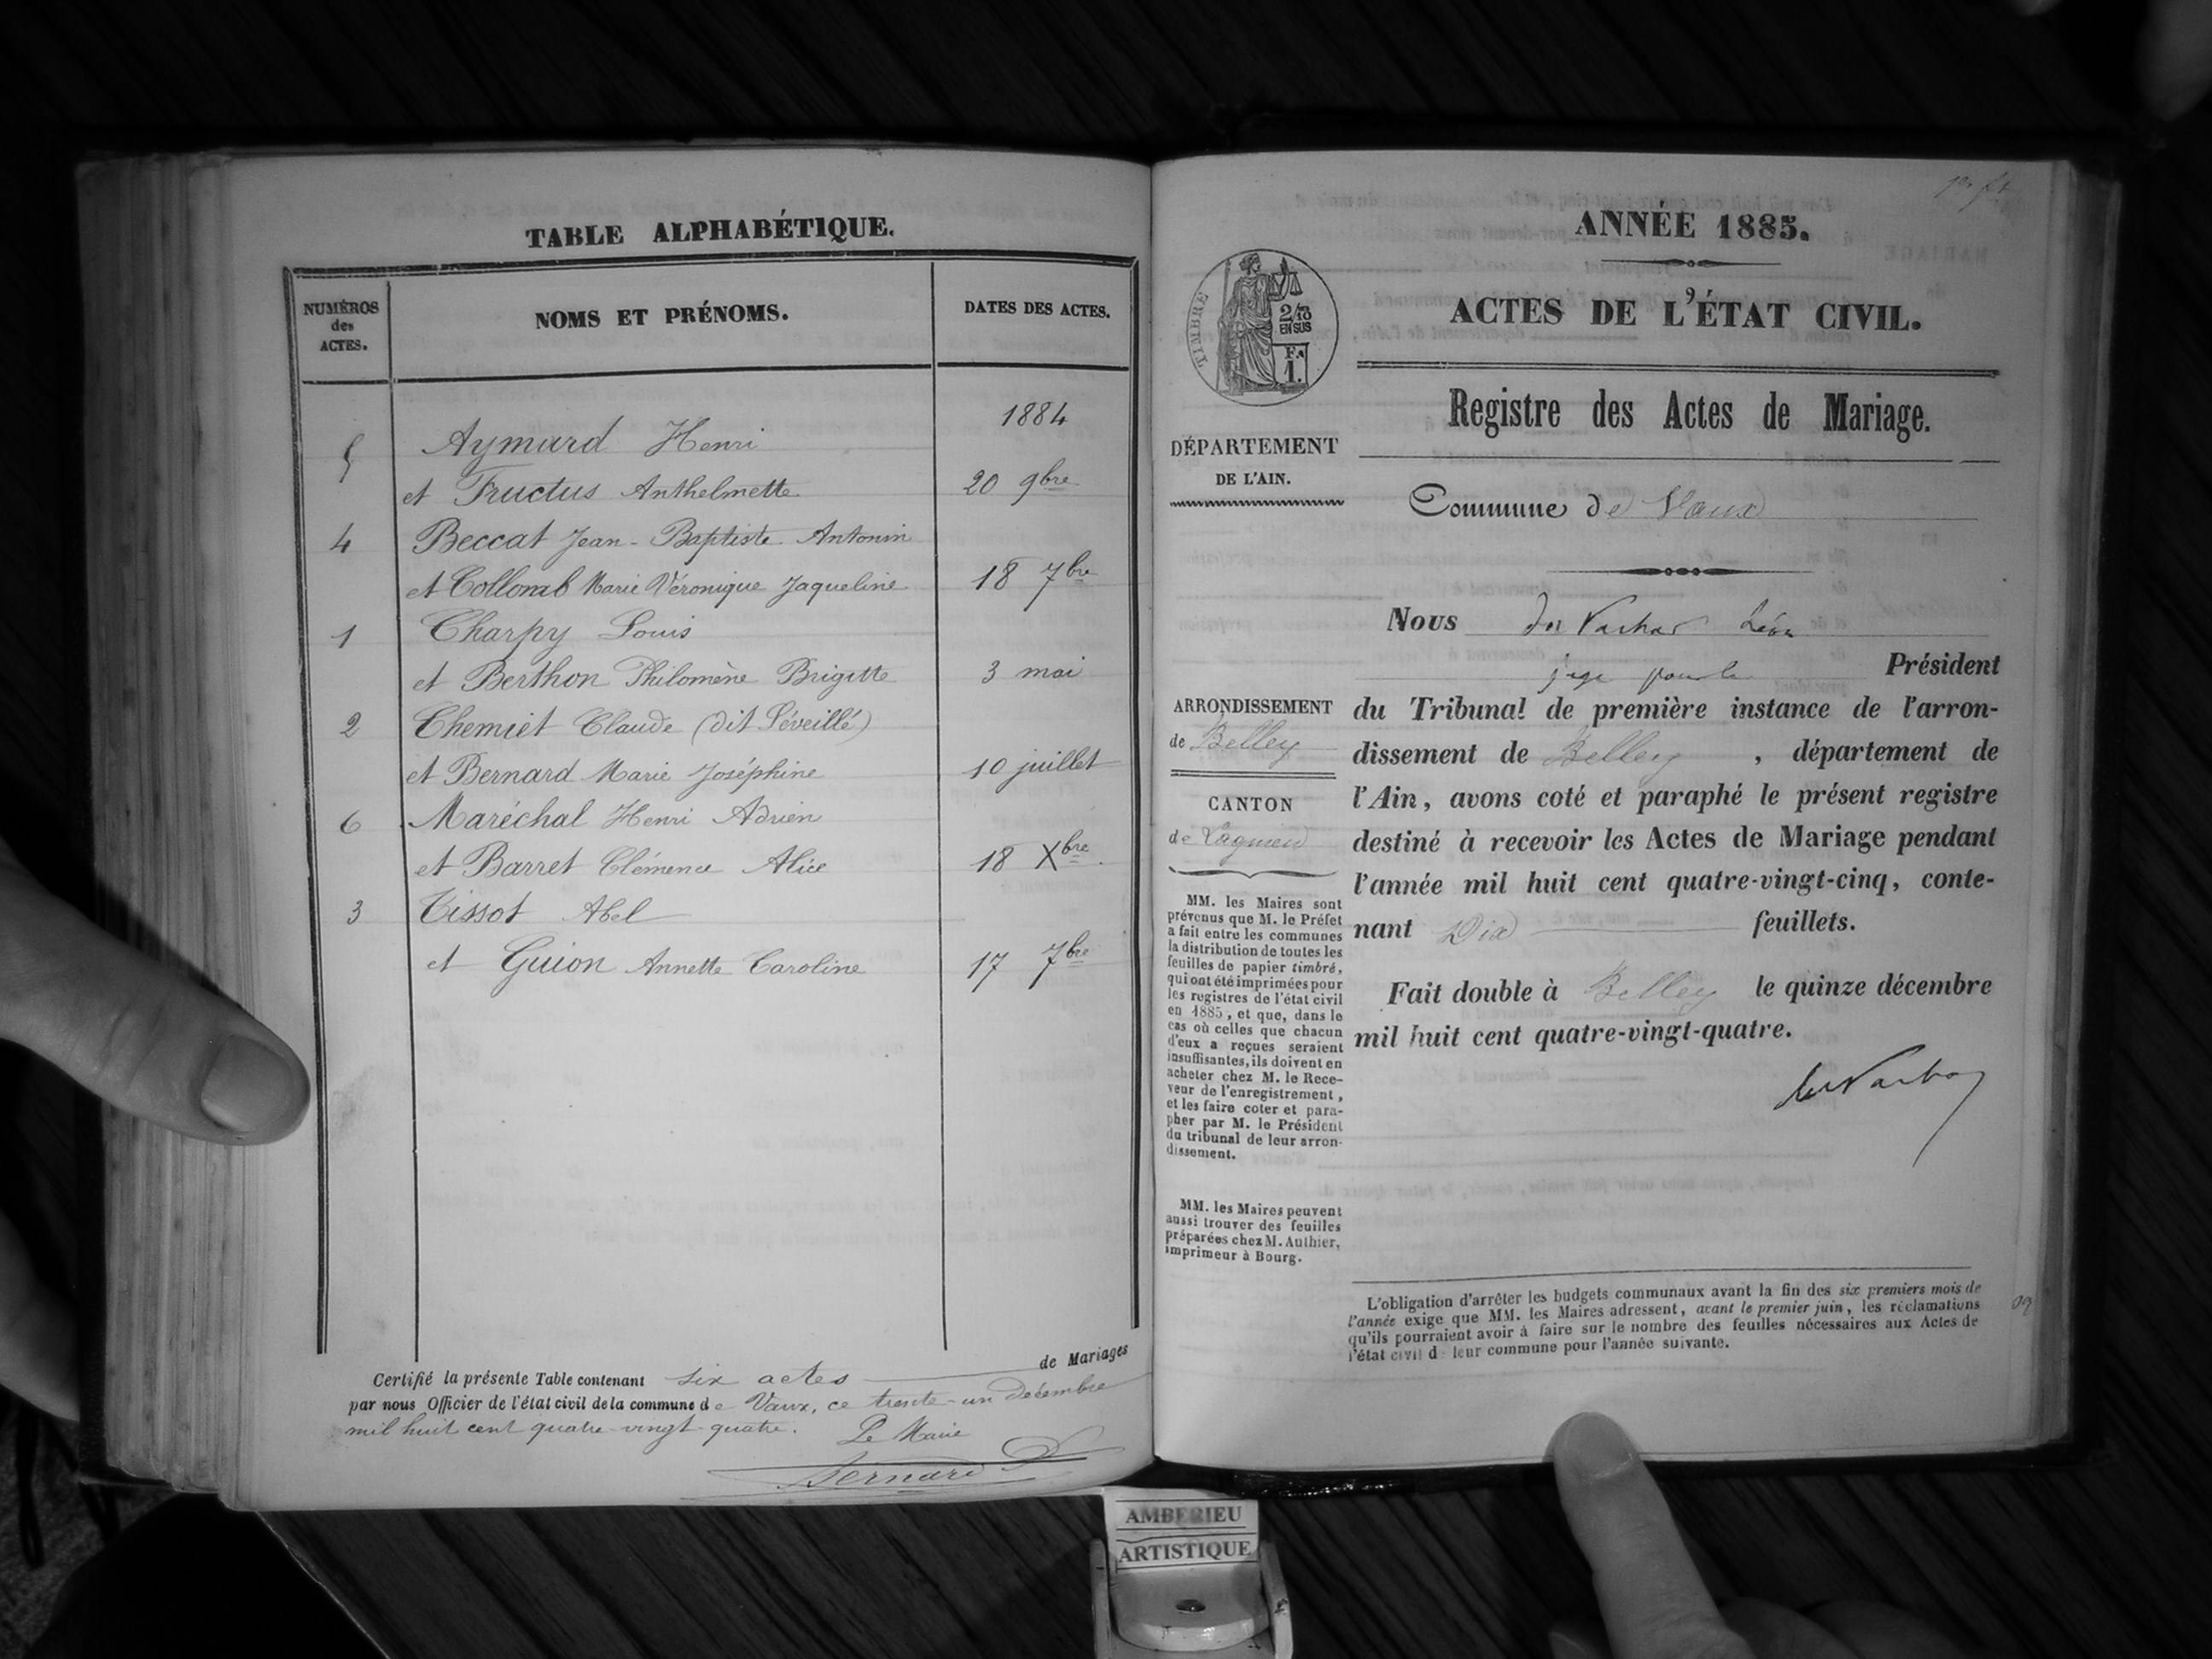 TABLE ALPHABÉTIQUE.
NUMÉROS
des
ACTES.
NOMS ET PRÉNOMS.
DATES DES ACTES.
1884
5 Aymard Henri
et Fructus Anthelmette 20 9bre
4 Beccat Jean-Baptiste Antonin
et Collomb Marie Véronique Jaqueline 18 7bre
1 Charpy Louis
et Berthon Philomène Brigitte 3 mai
2 Chemiet Claude (dit Léveillé)
et Bernard Marie Joséphine 10 juillet
6 Maréchal Henri Adrien
et Barret Clémence Alice 18 Xbre
3 Tissot Abel
et Guion Annette Caroline 17 7bre
Certifié la présente Table contenant six actes de Mariages
par nous Officier de l'état civil de la commune de Vaux, ce trente-un décembre
mil huit cent quatre-vingt-quatre. Le Maire
Bernard
ANNÉE 1885.
TIMBRE
2/10
EN SUS
F.
1.
ACTES DE L'ÉTAT CIVIL.
Registre des Actes de Mariage.
DÉPARTEMENT
DE L'AIN.
Commune de Vaux
Nous Léon
juge pour le Président
du Tribunal de première instance de l'arron-
dissement de Belley, département de
l'Ain, avons coté et paraphé le présent registre
destiné à recevoir les Actes de Mariage pendant
l'année mil huit cent quatre-vingt-cinq, conte-
nant Dix feuillets.
Fait double à Belley le quinze décembre
mil huit cent quatre-vingt-quatre.
ARRONDISSEMENT
de Belley
CANTON
de Lagnieu
MM. les Maires sont
prévenus que M. le Préfet
a fait entre les communes
la distribution de toutes les
feuilles de papier timbré,
qui ont été imprimées pour
les registres de l'état civil
en 1885, et que, dans le
cas où celles que chacun
d'eux a reçues seraient
insuffisantes, ils doivent en
acheter chez M. le Rece-
veur de l'enregistrement,
et les faire coter et para-
pher par M. le Président
du tribunal de leur arron-
dissement.
MM. les Maires peuvent
aussi trouver des feuilles
préparées chez M. Authier,
imprimeur à Bourg.
L'obligation d'arrêter les budgets communaux avant la fin des six premiers mois de
l'année exige que MM. les Maires adressent, avant le premier juin, les réclamations
qu'ils pourraient avoir à faire sur le nombre des feuilles nécessaires aux Actes de
l'état civil d leur commune pour l'année suivante.
AMBERIEU
ARTISTIQUE